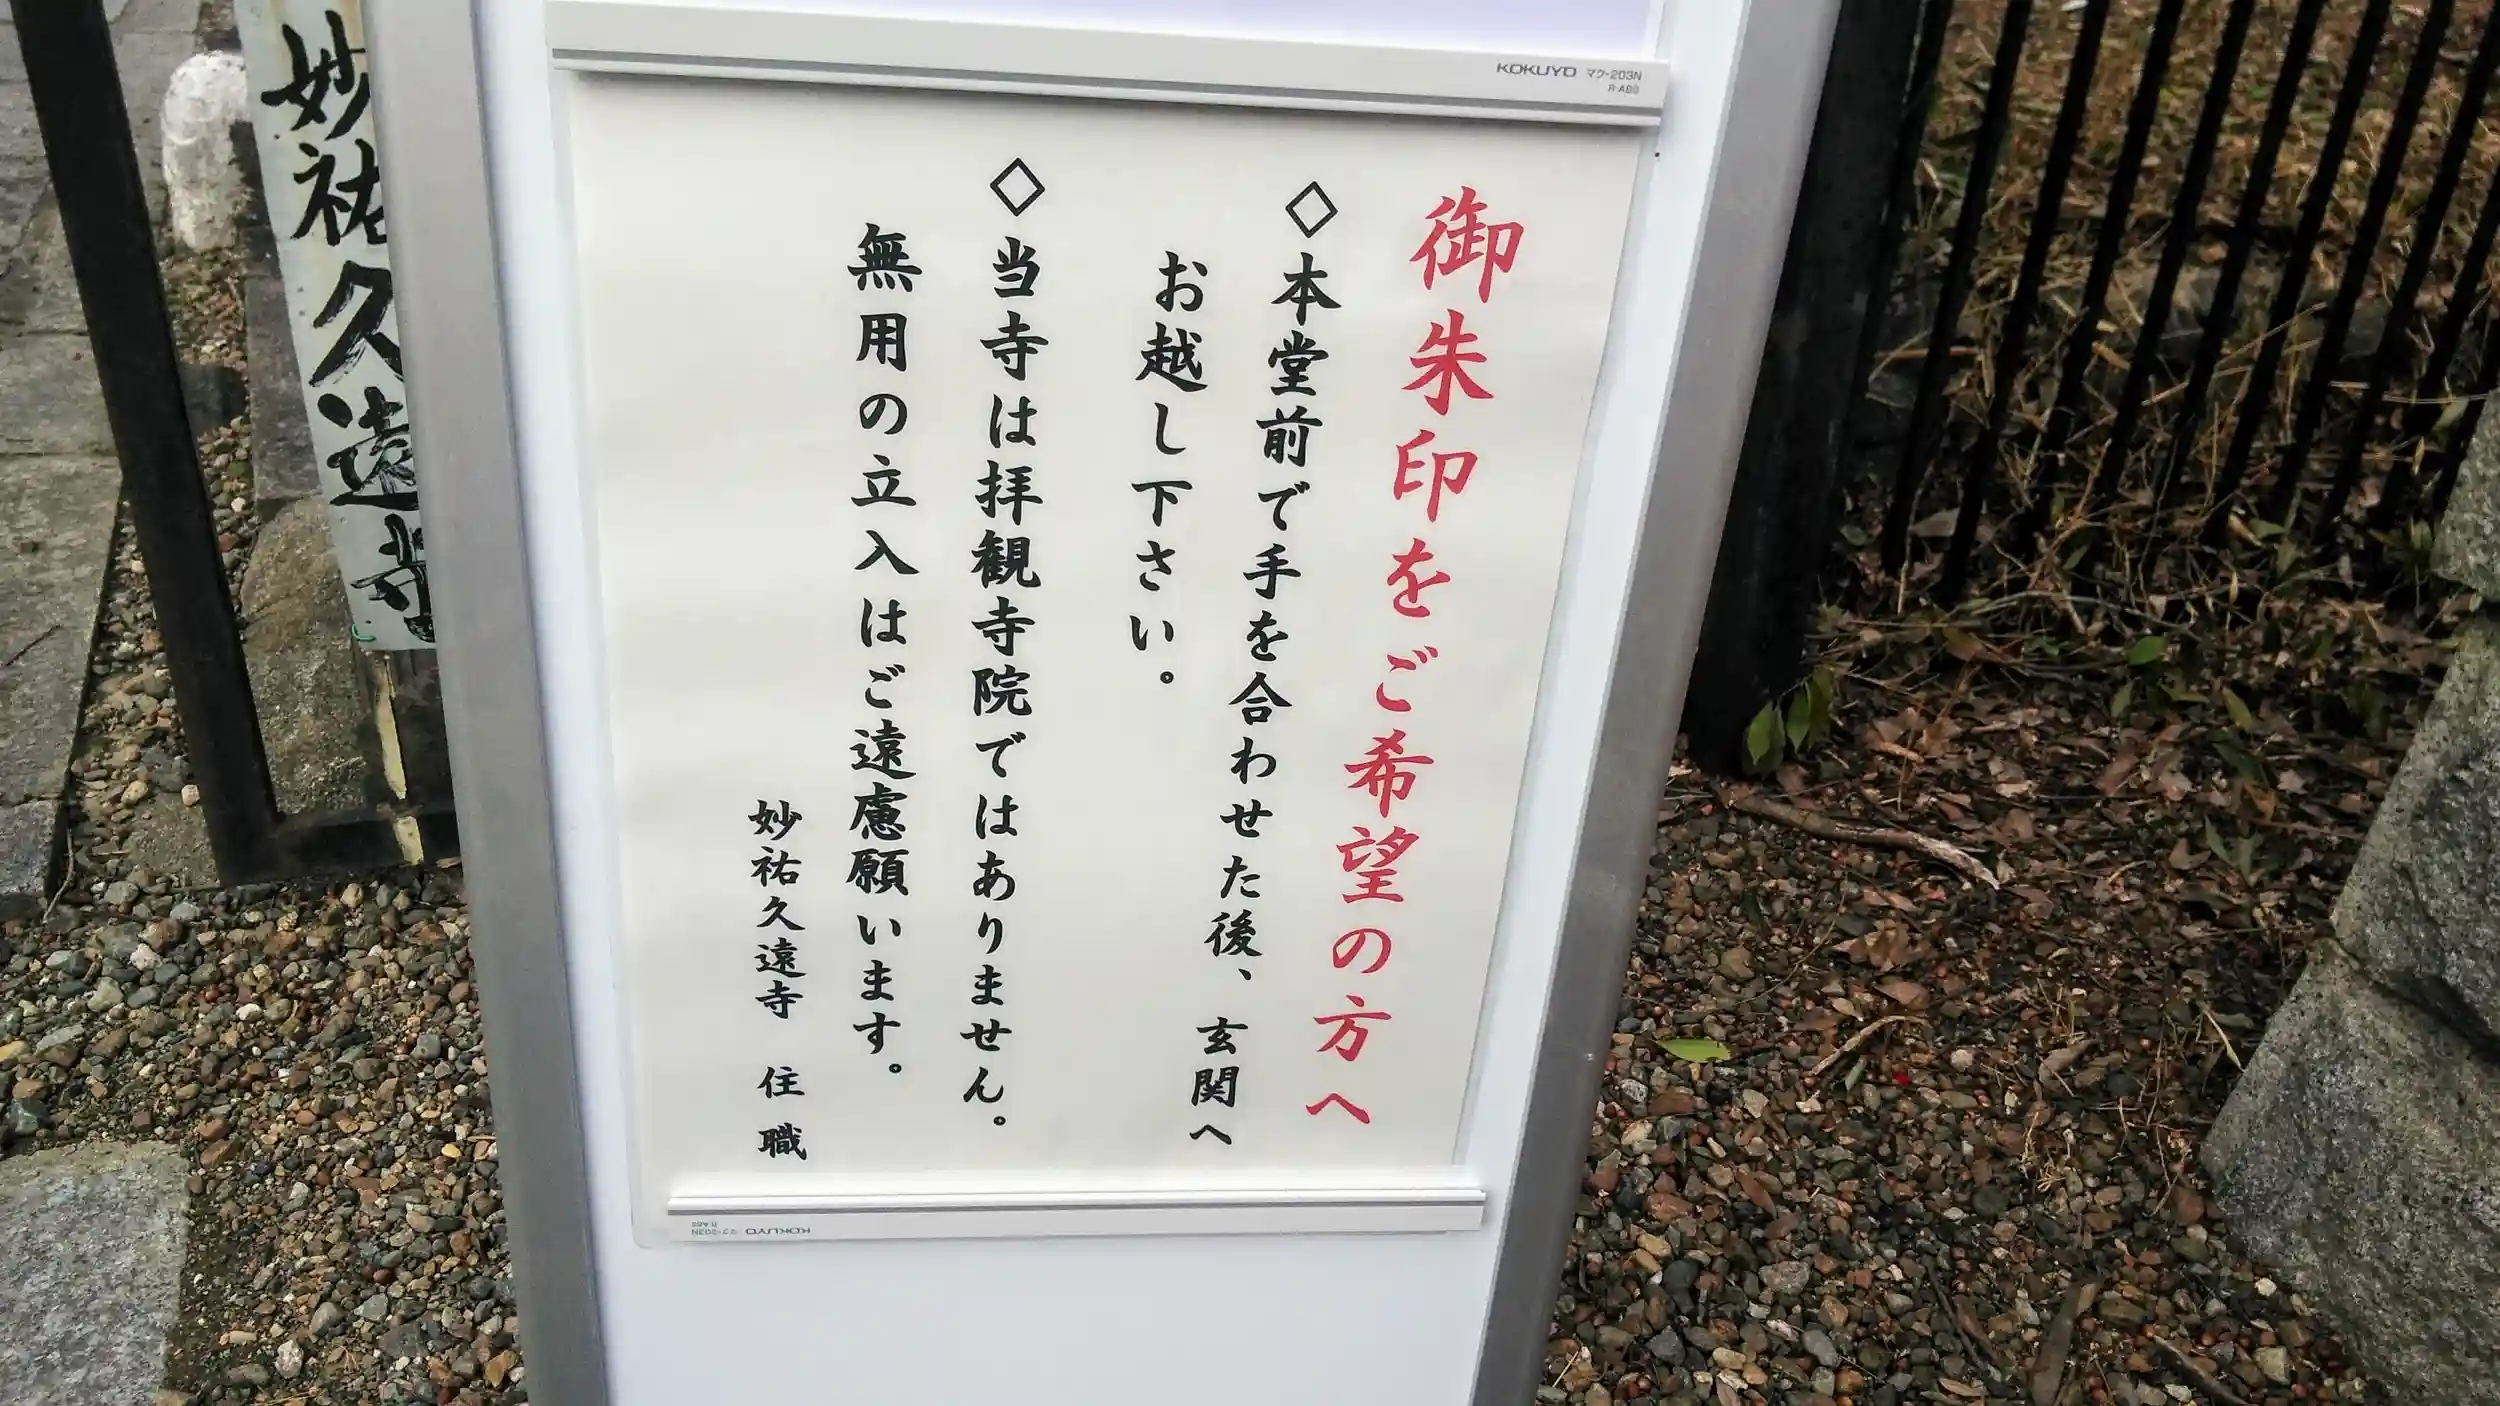 KOKUYO マク-203N
御朱印をご希望の方へ
◇本堂前で手を合わせた後、玄関へ
お越し下さい。
◇当寺は拝観寺院ではありません。
無用の立入はご遠慮願います。
妙祐久遠寺 住職
妙祐久遠寺
KOKUYO マク-203N